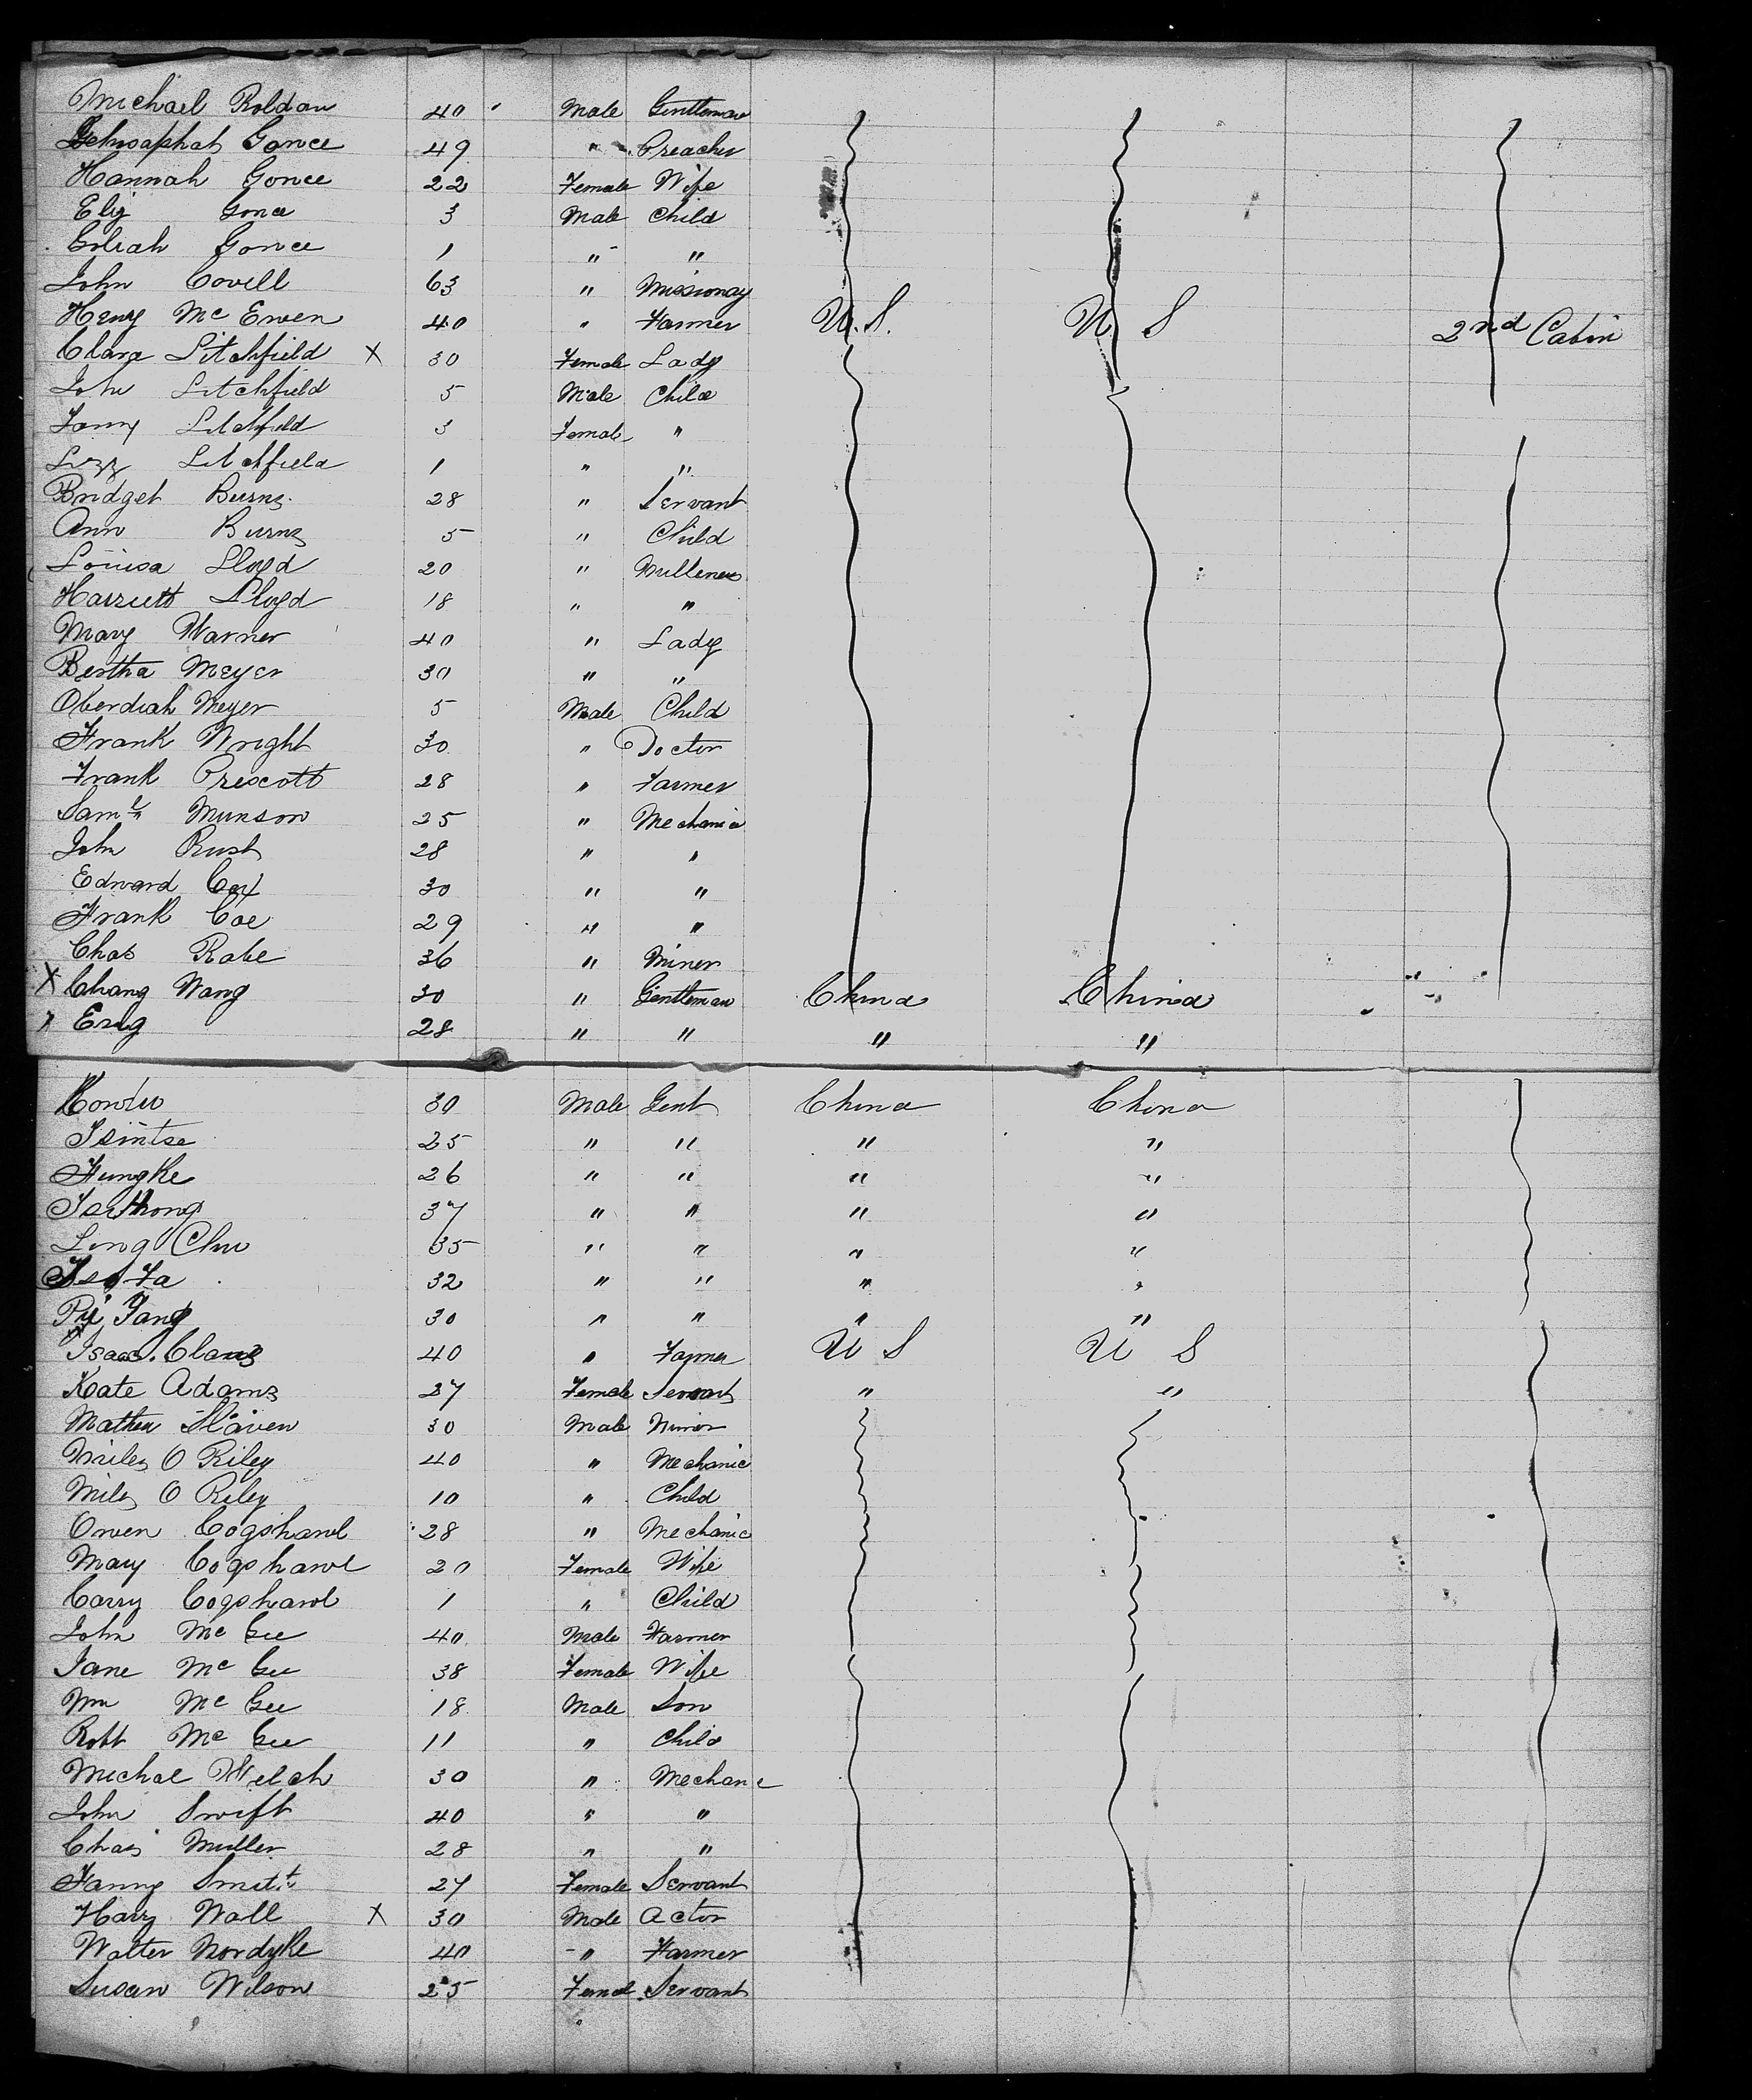 Michael Roldan 40 Male Gentleman
Jehosaphat Gonce 49 " Preacher
Hannah Gonce 22 Female Wife
Eliz Gonce 3 Male Child
Goliah Gonce 1 " "
John Covell 63 " Missionay
Henry Mc Ewen 40 " Farmer U.S. U S 2nd Cabin
Clara Litchfield X 30 Female Lady
John Litchfield 5 Male Child
Fanny Litchfield 3 Female "
Lizz Litchfield 1 " "
Bridget Burns 28 " Servant
Ann Burns 5 " Child
Louisa Lloyd 20 " Milleners
Harriett Lloyd 18 " "
Mary Warner 40 " Lady
Bertha Meyer 30 " "
Oberdiah Meyer 5 Male Child
Frank Wright 30 " Doctor
Frank Prescott 28 " Farmer
Saml Munson 25 " Mechanic
John Rust 28 " "
Edward Cox 30 " "
Frank Coe 29 " "
Chas Rabe 36 " Miner
X Chang Wang 30 " Gentleman China China
x Eng 28 " " " "
30 Male Gent China China
Tsintse 25 " " " "
FungKe 26 " " " "
37 " " " "
Ling Chu 35 " " " "
Fa 32 " " " "
Fang 30 " " " "
Isaac Claus 40 " Farmer U S U S
Kate Adams 27 Female Servant " "
Mathew Slaven 30 Male Minor
Miles O Riley 40 " Mechanic
Miles O Riley 10 " Child
Owen Cogshawl 28 " Mechanic
Mary Cogshawl 20 Female Wife
Carry Cogshawl 1 " Child
John Mc Gee 40 Male Farmer
Jane Mc Gee 38 Female Wife
Wm Mc Gee 18 Male Son
Robt Mc Gee 11 " Child
Michael Welch 30 " Mechanic
John Swift 40 " "
Chas Muller 28 " "
Fanny Smith 27 Female Servant
Harry Wall X 30 Male Actor
Walter Nordyke 40 " Farmer
Susan Wilson 25 Femal Servant
"